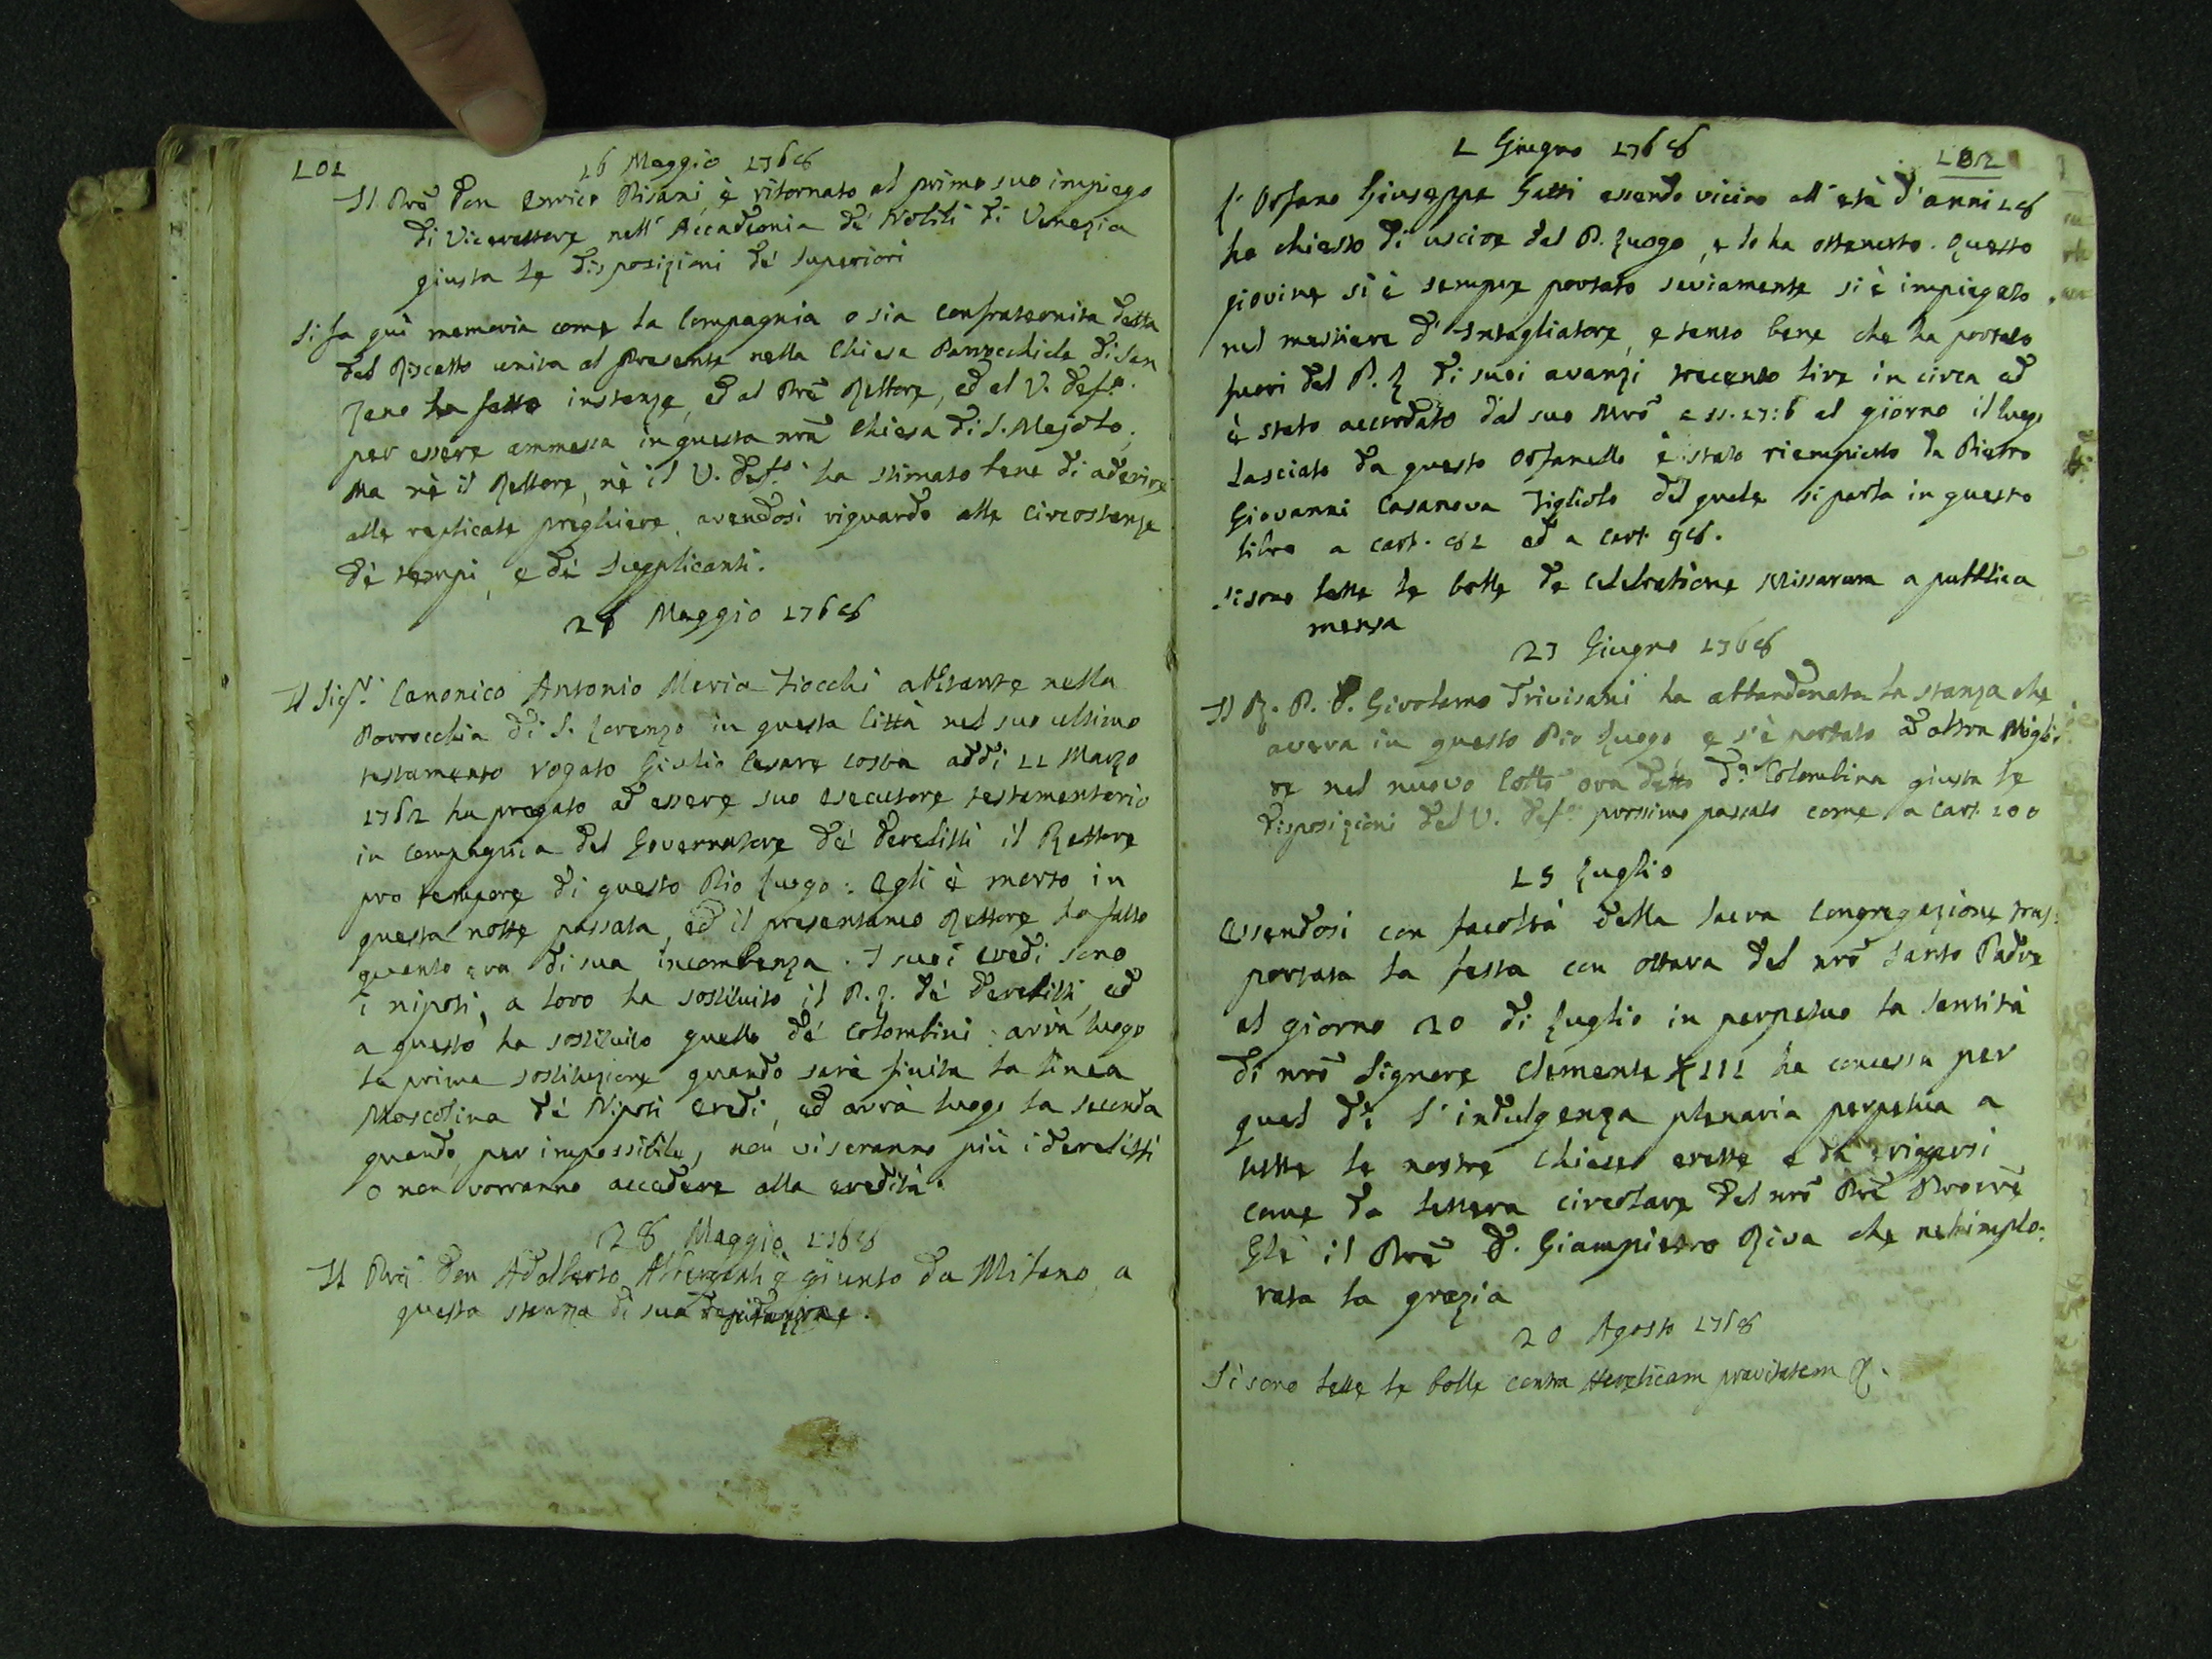 101
16 Maggio 1768
Il Prẽ Don Enrico Pisani, è ritornato al primo suo impiego
di Vicerettore nell' Accademia de' Nobili di Venezia
giusta le disposizioni de' Superiori
Si fa quì memoria come la Compagnia o sia confraternita detta
del Riscatto unita al presente nella Chiesa Parrocchiale di San
Zeno ha fatto instanze, ed al Prẽ Rettore, ed al V. Def.º
per essere ammessa in questa nrã Chiesa di S. Majolo;
Ma nè il Rettore, nè il V. Def.º ha stimato bene di aderire
alle replicate preghiere, avendosi riguardo alle circostanze
de' tempi, e de' Supplicanti.
26 Maggio 1768
Il Sig.r Canonico Antonio Maria Fiocchi abitante nella
Parrocchia di S. Lorenzo in questa Città nel suo ultimo
testamento rogato Giulio Cesare Costa addì 11 Marzo
1762 ha pregato ad essere suo esecutore testamentario
in compagnia del Governatore de' derelitti il Rettore
pro tempore di questo Pio Luogo: egli è morto in
questa notte passata, ed il presentaneo Rettore ha fatto
quanto era di sua incombenza. I suoi eredi sono
i nipoti, a loro ha sostituito il P. L. de' derelitti, ed
a questo ha sostituito quello de' Colombini: avrà luogo
la prima sostituzione quando sarà finita la linea
Mascolina de' Nipoti eredi, ed avrà luogo la seconda
quando, per impossibile, non vi saranno più i derelitti
o non vorranno accedere alla eredità.
28 Maggio 1768
Il Prẽ Don Adalberto è giunto da Milano a
questa stanza di sua
102
1 Giugno 1768
L' Orfano Giuseppe Gatti essendo vicino all' età d' anni 18
ha chiesto di uscire dal P. Luogo, e lo ha ottenuto. Questo
giovine si è sempre portato saviamente si è impiegato
nel mestiere d' Intagliatore, e tanto bene che ha portato
fuori del P. L di suoi avanzi trecento lire in circa ed
è stato accordato dal suo Mrõ a ss. 17:6 al giorno il luogo
lasciato da questo Orfanello è stato riempiuto da Pietro
Giovanni Casanova Figliolo del quale si parla in questo
libro a cart. 81 ed a cart. 98.
Si sono lette le bolle de celebratione Missarum a pubblica
mensa
23 Giugno 1768
Il R. P. D. Girolamo Trivisani ha abbandonata la stanza che
aveva in questo Pio Luogo, e s'è portato ad altra Miglio
re nel nuovo Cotto ora detto d.ª Colombina giusta le
disposizioni del V. Def.º prossimo passato come a Cart. 100
15 Luglio
Essendosi con facoltà della Sacra Congregazione tras-
portata la festa con ottava del nrõ Santo Padre
al giorno 20 di Luglio in perpetuo la Santità
di nrõ Signore Clemente XIII ha concessa per
quel dì l' indulgenza plenaria perpetua a
tutte le nostre Chiese erette e da erigersi
come da lettera circolare del nrõ Prẽ Procrẽ
Gle il Prẽ D. Giampietro Riva che ne ha implo-
rata la grazia
20 Agosto 1768
Si sono lette le bolle contra Hereticam pravitatem &.